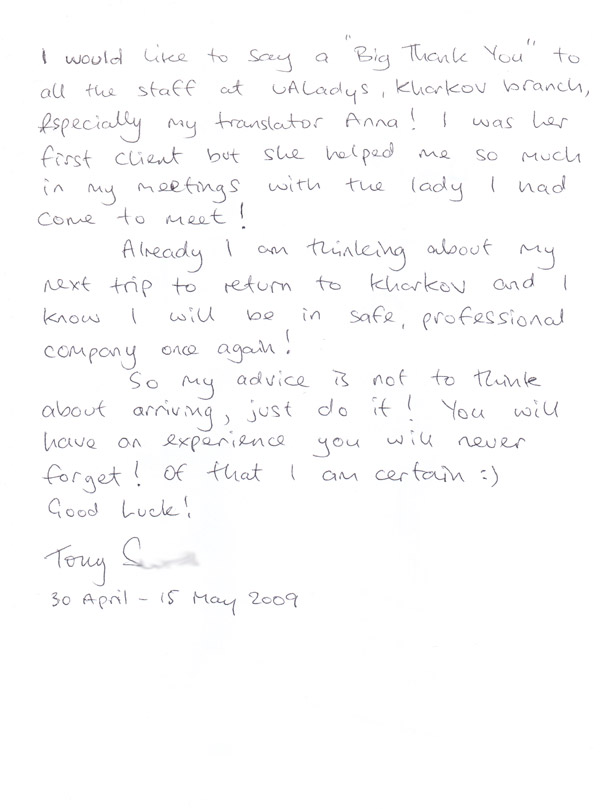 I would like to say a "Big Thank You" to
all the staff at UALadys, Kharkov branch,
Especially my translator Anna! I was her
first client but she helped me so much
in my meetings with the lady I had
come to meet!
Already I am thinking about my
next trip to return to Kharkov and I
know I will be in safe, professional
company once again!
So my advice is not to think
about arriving, just do it! You will
have an experience you will never
forget! Of that I am certain :)
Good Luck!
Tony S
30 April - 15 May 2009